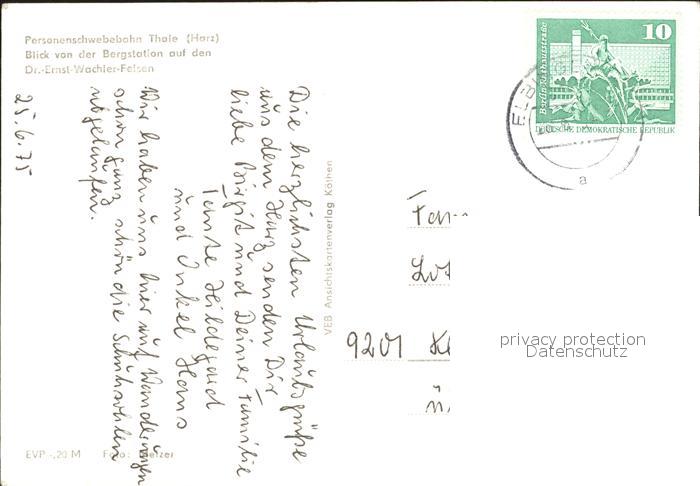 Personenschwebebahn Thale (Harz)
Blick von der Bergstation auf den
Dr.-Ernst-Wachler-Felsen
Die herzlichsten Urlaubsgrüße
aus dem Harz senden Dir
liebe Birgit und Deiner Familie
Tante Hildegard
und Onkel Hans
Wir haben uns hier auf Wanderungen
schon ganz schön die Schuhsohlen
abgelaufen.
25.6.75
EVP -,20 M Foto:
VEB Ansichtskartenverlag Köthen
10
Berlin, Rathausstraße
DEUTSCHE DEMOKRATISCHE REPUBLIK
ELB
a
Fam
Lot
9201 Kl
ü
privacy protection
Datenschutz